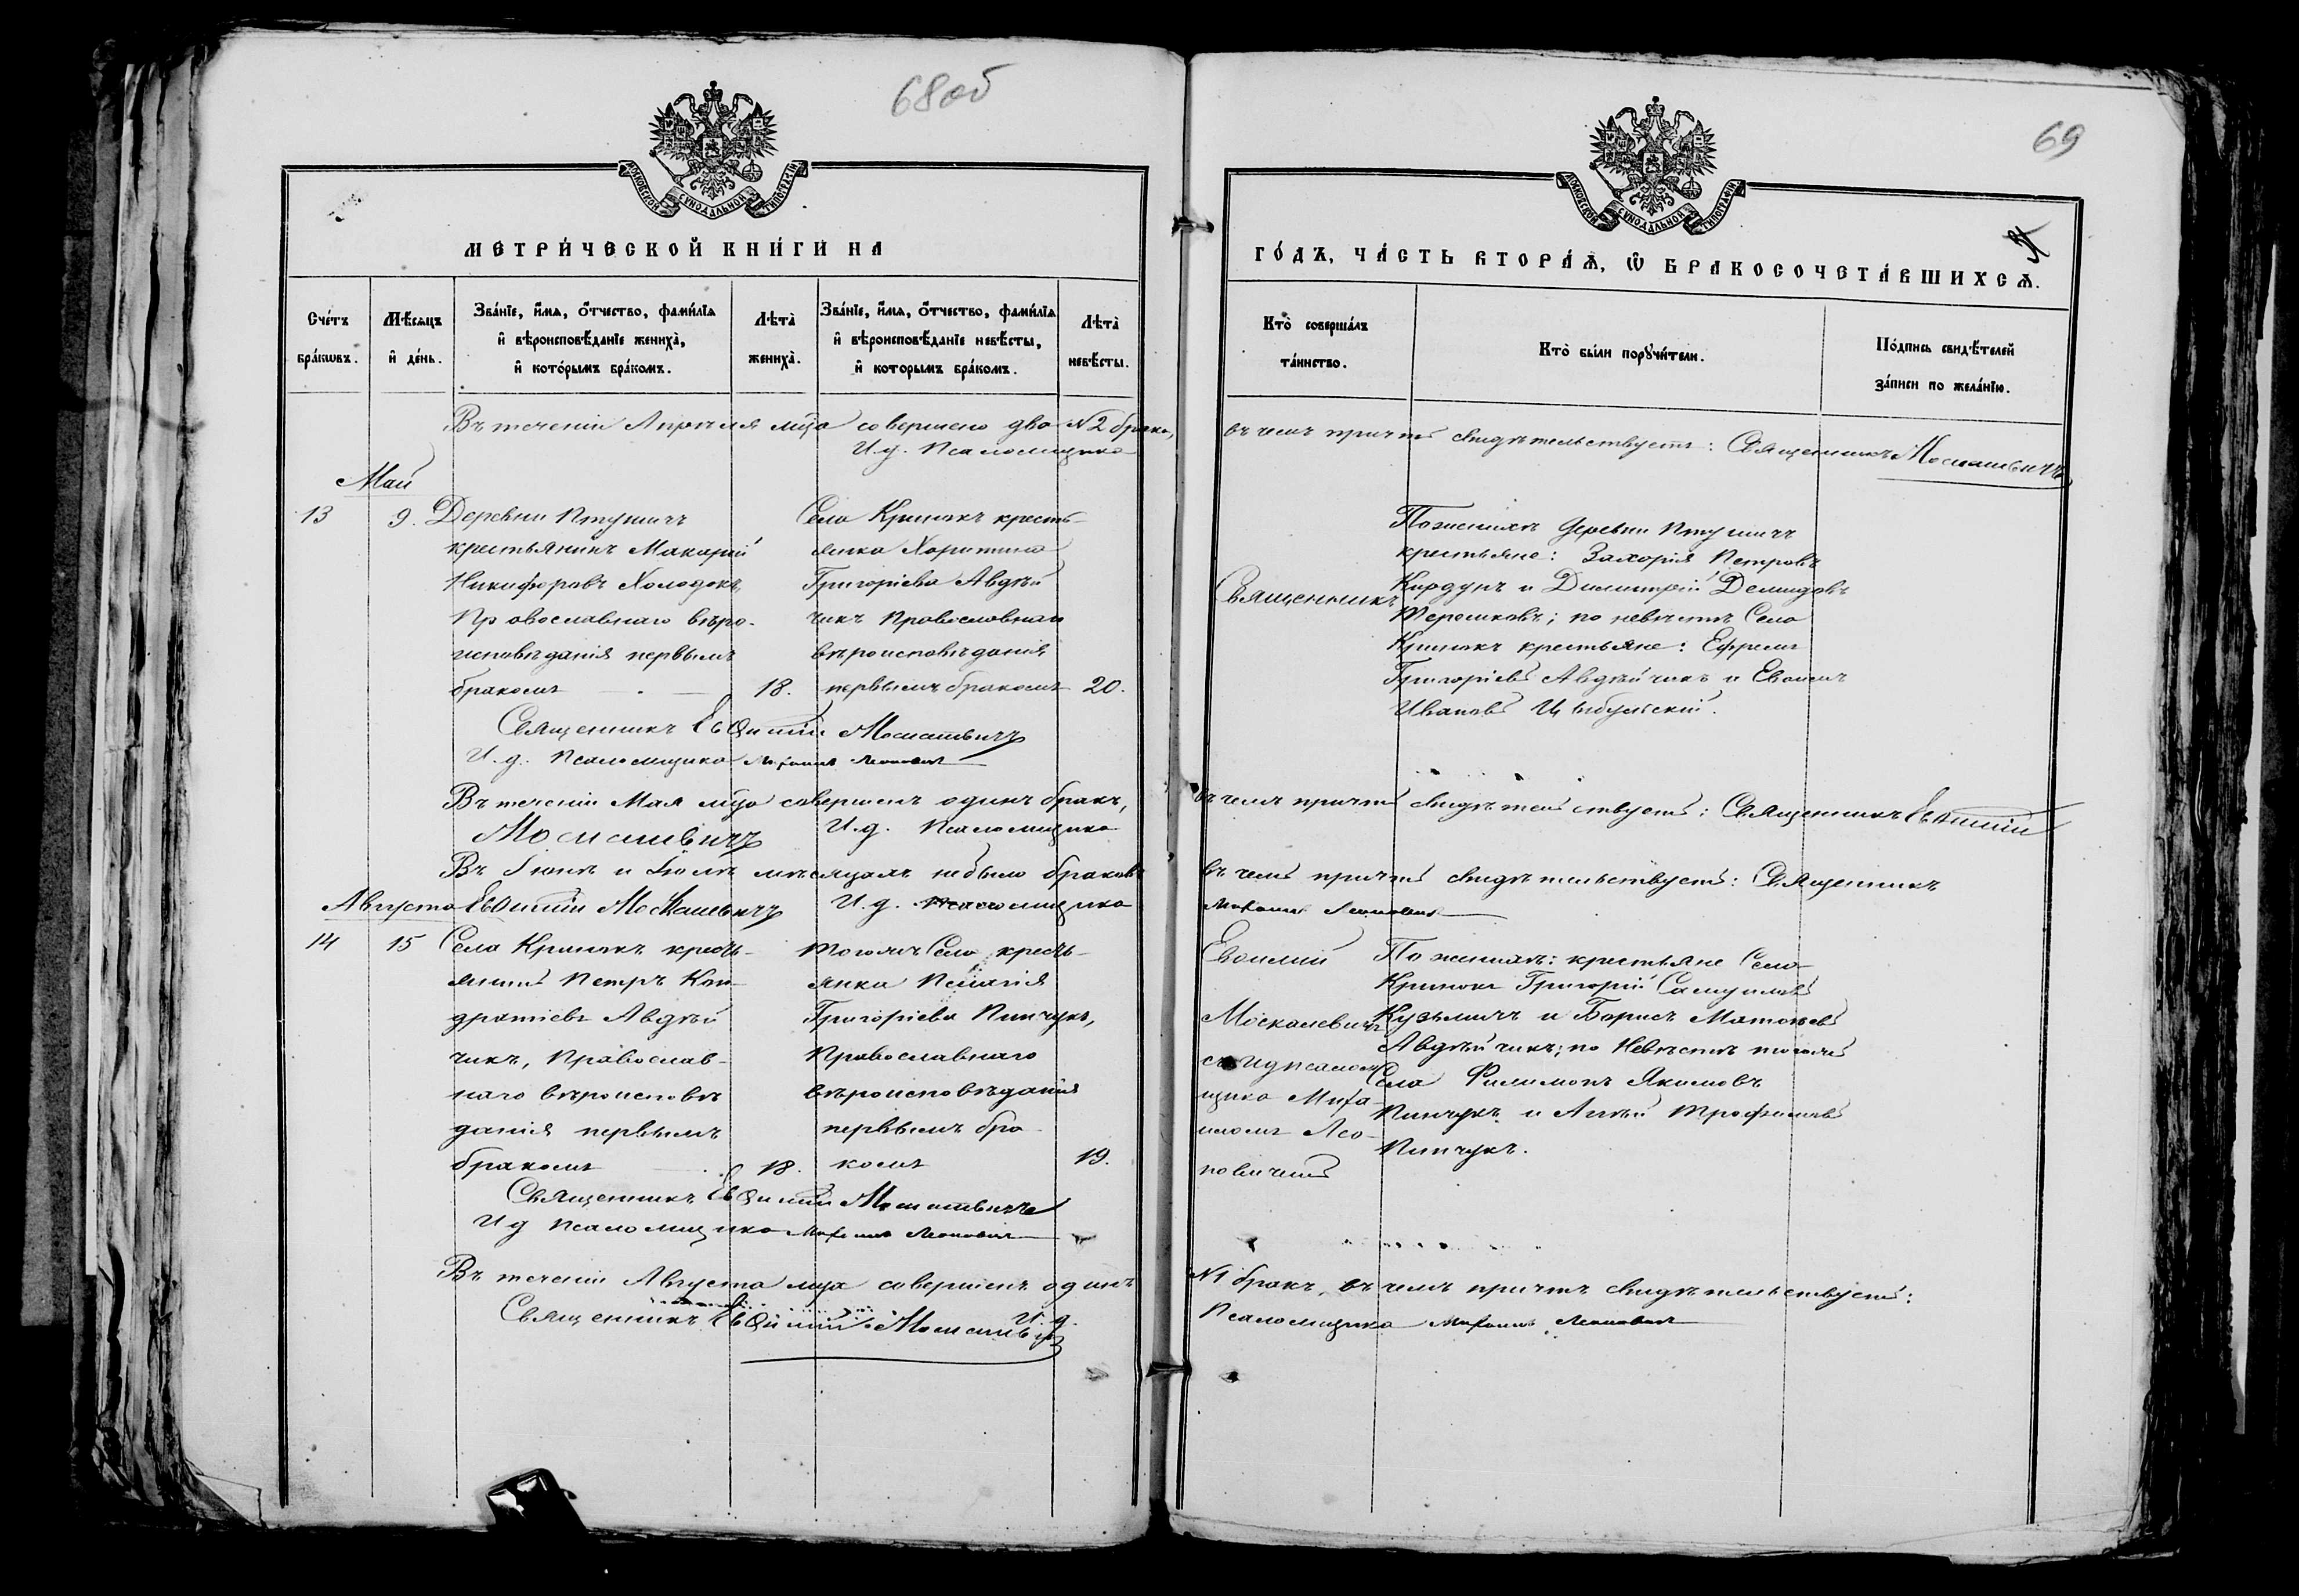 68об
МОСКОВСКОЙ СѴНОДАЛЬНОЙ ТИПОГРАФІИ
МЕТРИ́ЧЕСКОЙ КНИ́ГИ НА
Сче́тъ бра́ковъ.
Мѣ́сяцъ и҆ де́нь.
Зва́нїе, и҆́мя, ѻ҆́тчество, фами́лїя и҆ вѣроисповѣ́данїе жениха̀, и҆ кото́рымъ бра́комъ.
Лѣта̀ жениха̀.
Зва́нїе, и҆́мя, ѻ҆́тчество, фами́лїя и҆ вѣроисповѣ́данїе невѣ́сты, и҆ которымъ бра́комъ.
Лѣта̀ невѣ́сты.
Въ теченіи Апрѣля мѣца совершено два №2 брака,
И.д. Псаломщика
Май
13
9.
Деревни Птушичъ
крестьянинъ Макарій
Никифоровъ Холодокъ,
Православнаго вѣро-
исповѣданія первымъ
бракомъ
18.
Села Кринокъ кресть-
янка Харитина
Григоріева Авдѣй
чикъ Православнаго
вѣроисповѣданія
первымъ бракомъ
20.
Священникъ Евѳимій Москалевичъ
И.д. Псаломщика Михаилъ Леоновичъ
Въ теченіи Мая мѣца совершенъ одинъ бракъ,
Москалевичъ И.д. Псаломщика
Въ Іюнѣ и Іюлѣ мѣсяцахъ небыло браковъ
Августа
Евѳимій Москалевичъ И.д. Псаломщика
14
15
Села Кринокъ кресть-
янинъ Петръ Кон-
дратіевъ Авдѣй
чикъ, Православ-
наго вѣроисповѣ
данія первымъ
бракомъ
18.
тогожъ Села кресть-
янка Пелагія
Григоріева Пинчукъ,
Православнаго
вѣроисповѣданія
первымъ бра-
комъ
19.
Священникъ Евѳимій Москалевичъ
И д Псаломщика Михаилъ Леоновичъ
Въ теченіи Августа мѣца совершенъ одинъ
Священникъ Евѳимій Москалевичъ И. д.
69
МОСКОВСКОЙ СѴНОДАЛЬНОЙ ТИПОГРАФІИ
ГО́ДЪ, ЧА́СТЬ ВТОРА́Ѧ, Ѡ҆ БРАКОСОЧЕТА́ВШИХСѦ.
Кто̀ соверша́лъ та́инство.
Кто̀ бы́ли порꙋчи́тели.
По́дпись свидѣ́телей за́писи по жела́нїю.
въ чемъ причтъ свидѣтельствуетъ: Священникъ Москалевичъ
Священникъ
По женихѣ деревни Птушичъ
крестьяне: Захарія Петровъ
Кирдунъ и Димитрій Демидовъ
Терешковъ; по невѣстѣ Села
Кринокъ крестьяне: Ефремъ
Григоріевъ Авдѣйчикъ и Евѳимъ
Ивановъ Цыбульскій.
въ чемъ причтъ свидѣтельствуетъ: Священникъ Евѳимій
въ чемъ причтъ свидѣтельствуетъ: Священникъ
Михаилъ Леоновичъ
Евѳимій
Москалевичъ
съ и д псалом
щика Миха-
иломъ Лео-
новичемъ
По женихѣ: крестьяне Села
Кринокъ Григорій Самуиловъ
Кузьмичъ и Борисъ Матѳѣевъ
Авдѣйчикъ; по Невѣстѣ тогожъ
Села Филимонъ Якимовъ
Пинчукъ и Трофимовъ
Пинчукъ.
№1 бракъ, въ чемъ причтъ свидѣтельствуетъ:
Псаломщика Михаилъ Леоновичъ